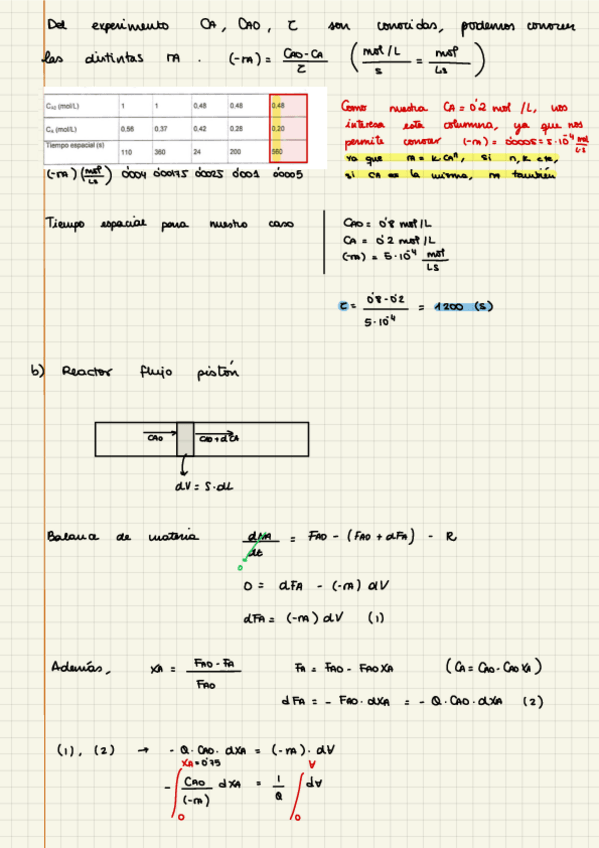 Del experimento CA, CAO, τ son conocidas, podemos conocer
las distintas rA. (-rA) = CAO-CA / τ ( mol/L / s = mol / Ls )
CAO (mol/L) 1 1 0,48 0,48 0,48
CA (mol/L) 0,56 0,37 0,42 0,28 0,20
Tiempo espacial (s) 110 360 24 200 560
(-rA) (mol / Ls) 0'004 0'00175 0'0025 0'001 0'0005
Como nuestra CA = 0'2 mol /L, nos
interesa esta columna, ya que nos
permite conocer (-rA) = 0'0005 = 5·10⁻⁴ mol / Ls
Ya que rA = k CAⁿ, si n, k cte,
si CA es la misma, rA también
Tiempo espacial para nuestro caso
CAO = 0'8 mol/L
CA = 0'2 mol/L
(-rA) = 5·10⁻⁴ mol / Ls
τ = 0'8-0'2 / 5·10⁻⁴ = 1200 (s)
b) Reactor flujo pistón
CAO CAO+dCA
dV = S·dL
Balance de materia dNA / dt = FAO - (FAO + dFA) - R
0
0 = dFA - (-rA) dV
dFA = (-rA) dV (1)
Además, XA = FAO - FA / FAO FA = FAO - FAO XA (CA = CAO - CAO XA)
dFA = - FAO · dXA = - Q · CAO · dXA (2)
(1), (2) → - Q · CAO · dXA = (-rA) · dV
XA = 0'75 V
- ∫ CAO / (-rA) dXA = 1 / Q ∫ dV
0 0